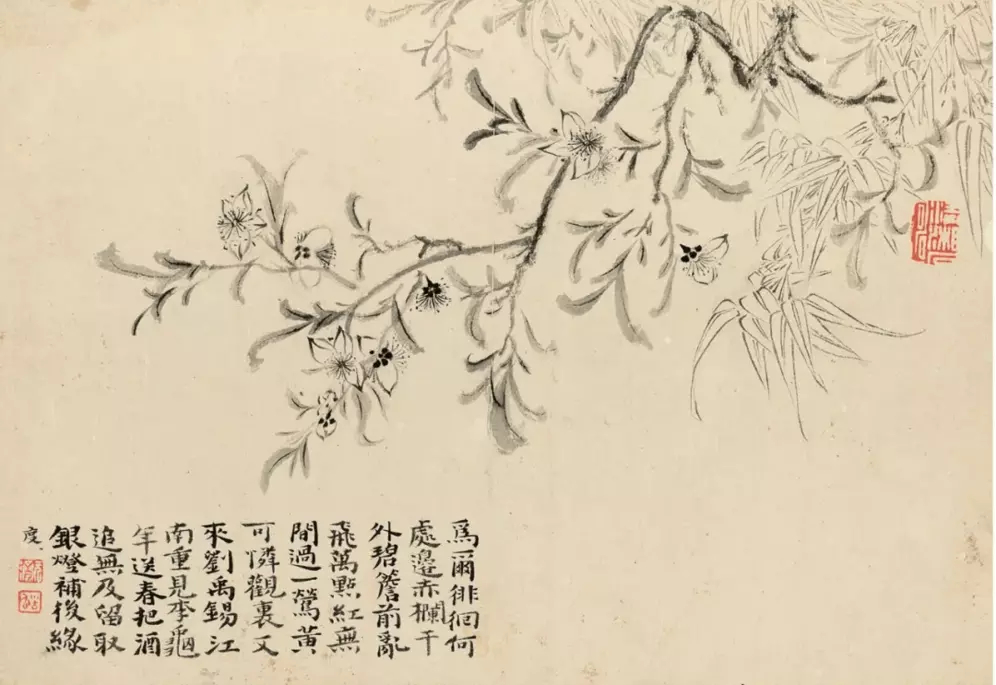 爲爾徘徊何
處邊赤欄干
外碧簷前亂
飛萬點紅無
間過一鶯黃
可憐觀裏又
來劉禹錫江
南重見李龜
年送春把酒
追無及留取
銀燈補後緣